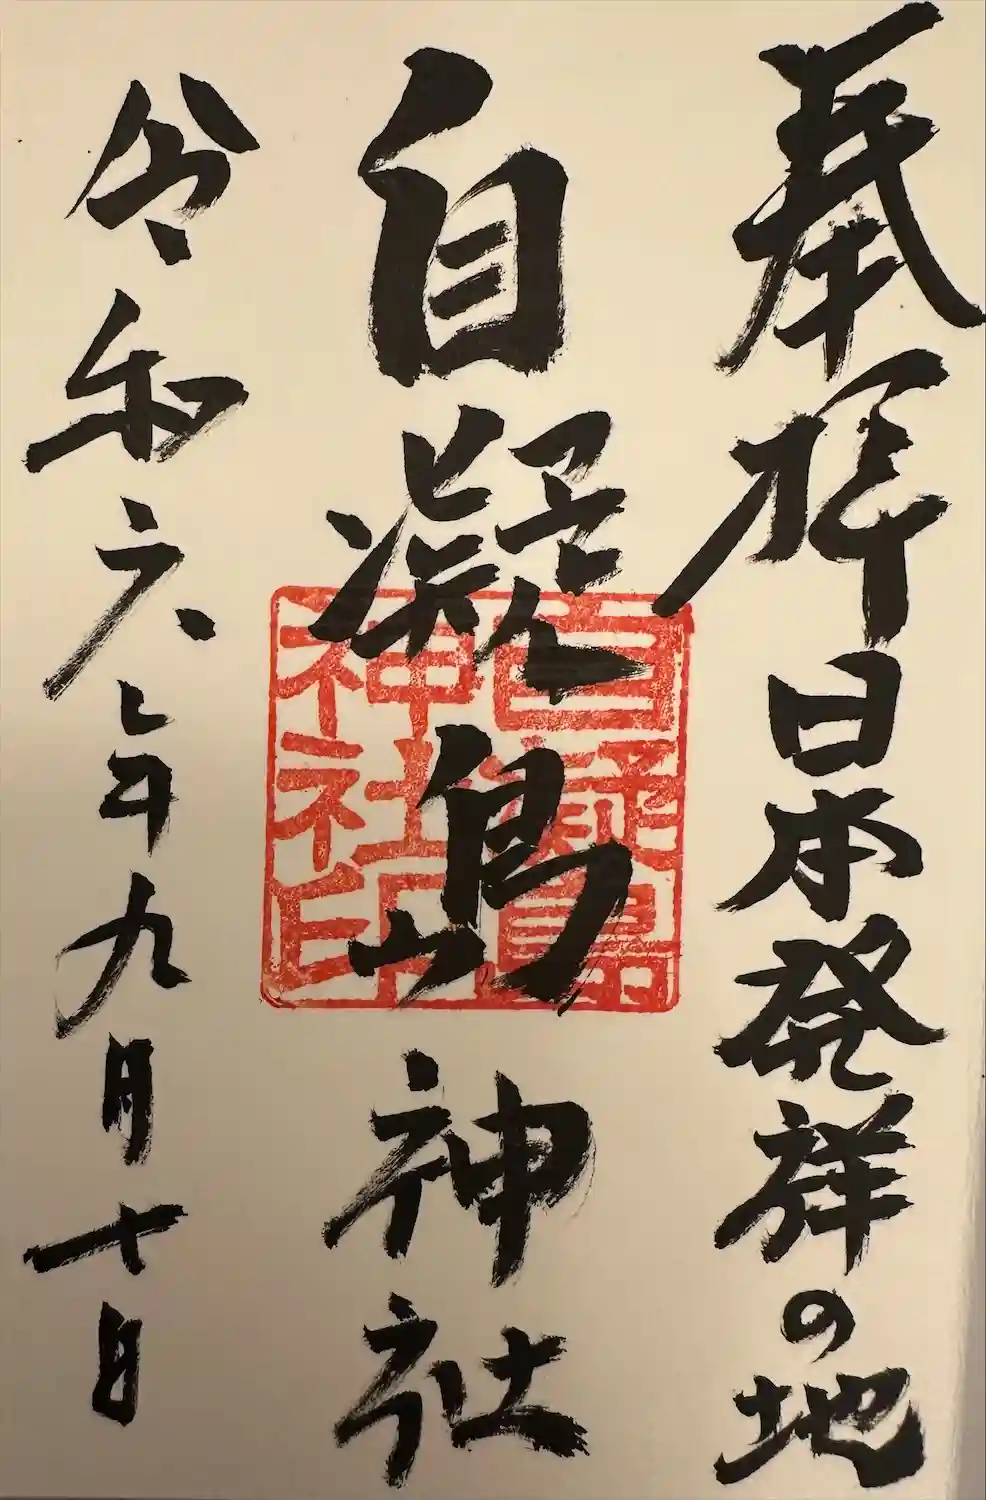 奉拝日本発祥の地
自凝島神社
自凝島
神社印
令和六年九月十日